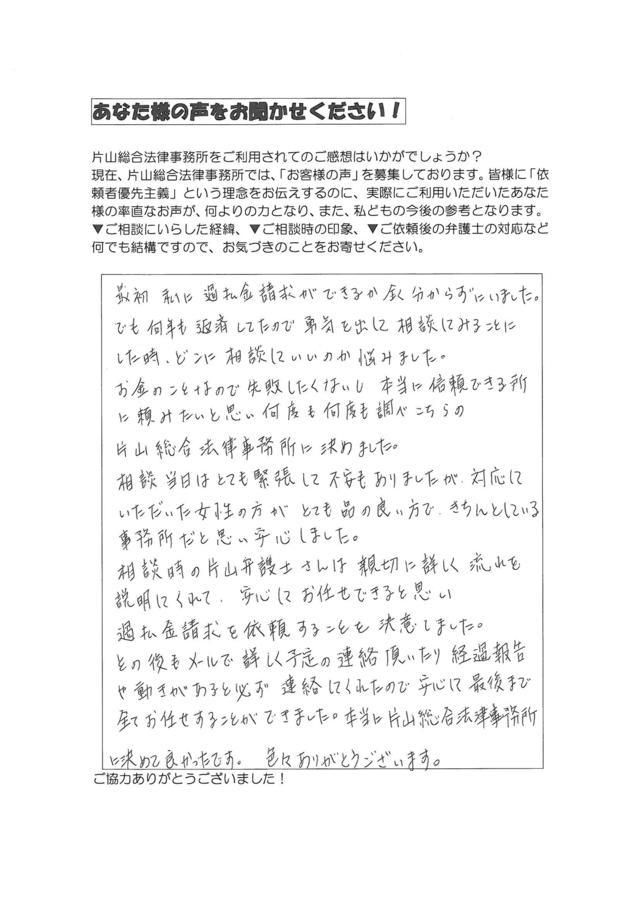 あなた様の声をお聞かせください！
片山総合法律事務所をご利用されてのご感想はいかがでしょうか？
現在、片山総合法律事務所では、「お客様の声」を募集しております。皆様に「依
頼者優先主義」という理念をお伝えするのに、実際にご利用いただいたあなた
様の率直なお声が、何よりの力となり、また、私どもの今後の参考となります。
▼ご相談にいらした経緯、▼ご相談時の印象、▼ご依頼後の弁護士の対応など
何でも結構ですので、お気づきのことをお寄せください。
最初 私に 過払金請求ができるか全く分からずにいました。
でも何年も返済してたので勇気を出して相談してみることに
した時、どこに相談していいのか悩みました。
お金のことなので失敗したくないし 本当に信頼できる所
に頼みたいと思い何度も何度も調べこちらの
片山総合法律事務所に決めました。
相談当日はとても緊張して不安もありましたが、対応して
いただいた女性の方がとても品の良い方で、きちんとしている
事務所だと思い安心しました。
相談時の片山弁護士さんは 親切に詳しく流れを
説明してくれて、安心してお任せできると思い
過払金請求を依頼することを決意しました。
その後もメールで詳しく予定の連絡頂いたり経過報告
や動きがあると必ず連絡してくれたので安心して最後まで
全てお任せすることができました。本当に片山総合法律事務所
に決めて良かったです。 色々ありがとうございます。
ご協力ありがとうございました！